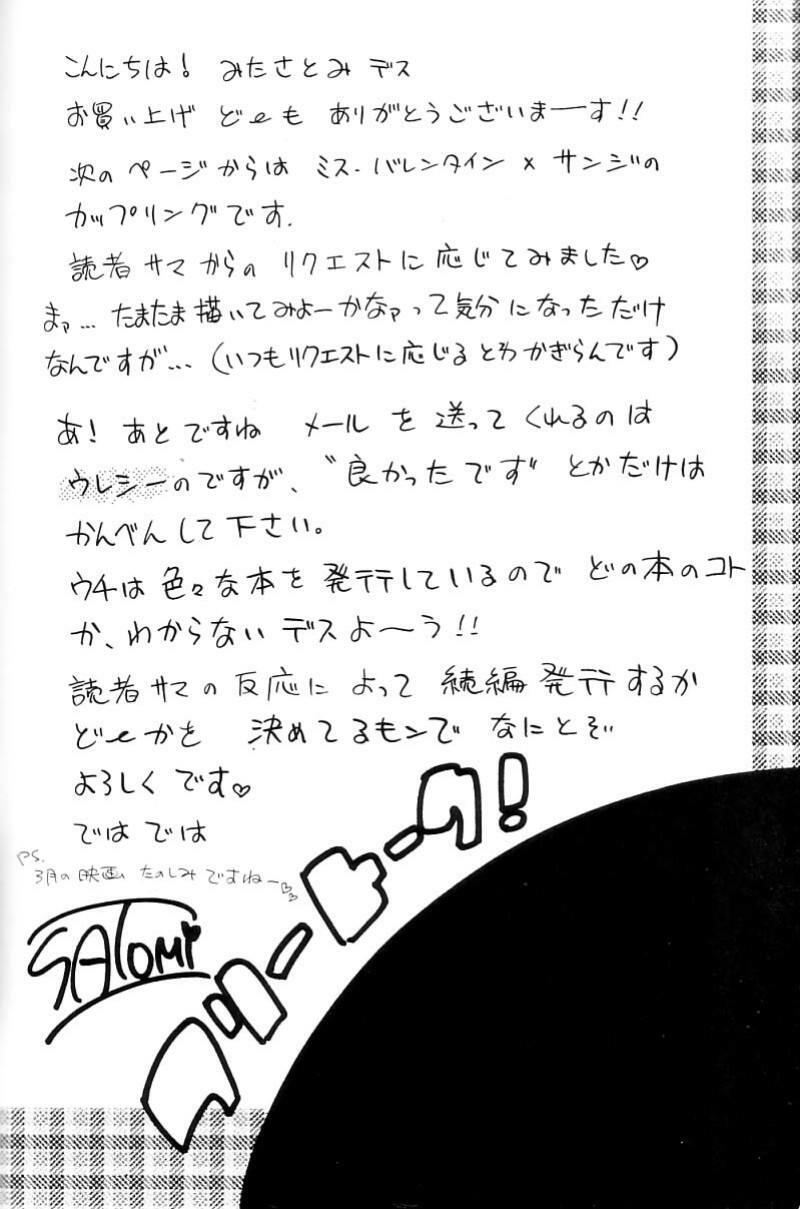 こんにちは! みたさとみ デス
お買い上げ どーも ありがとうございまーす!!
次の ページからは ミス・バレンタイン × サンジの
カップリングです.
読者サマからの リクエストに応じてみました♡
まァ… たまたま描いてみよーかなァって気分になっただけ
なんですが…(いつもリクエストに応じるとわかぎらんです)
あ! あとですね メールを送ってくれるのは
ウレシーのですが、〝良かったです〟とかだけは
かんべんして下さい。
ウチは色々な本を発行しているのでどの本のコト
か、わからないデスよ〜う!!
読者サマの反応によって 続編発行するか
どーかを 決めてるモンで なにとぞ
よろしくです♡
ではでは
PS.
3月の映画 たのしみですねー♡♡
フリートーク!
SATOMi